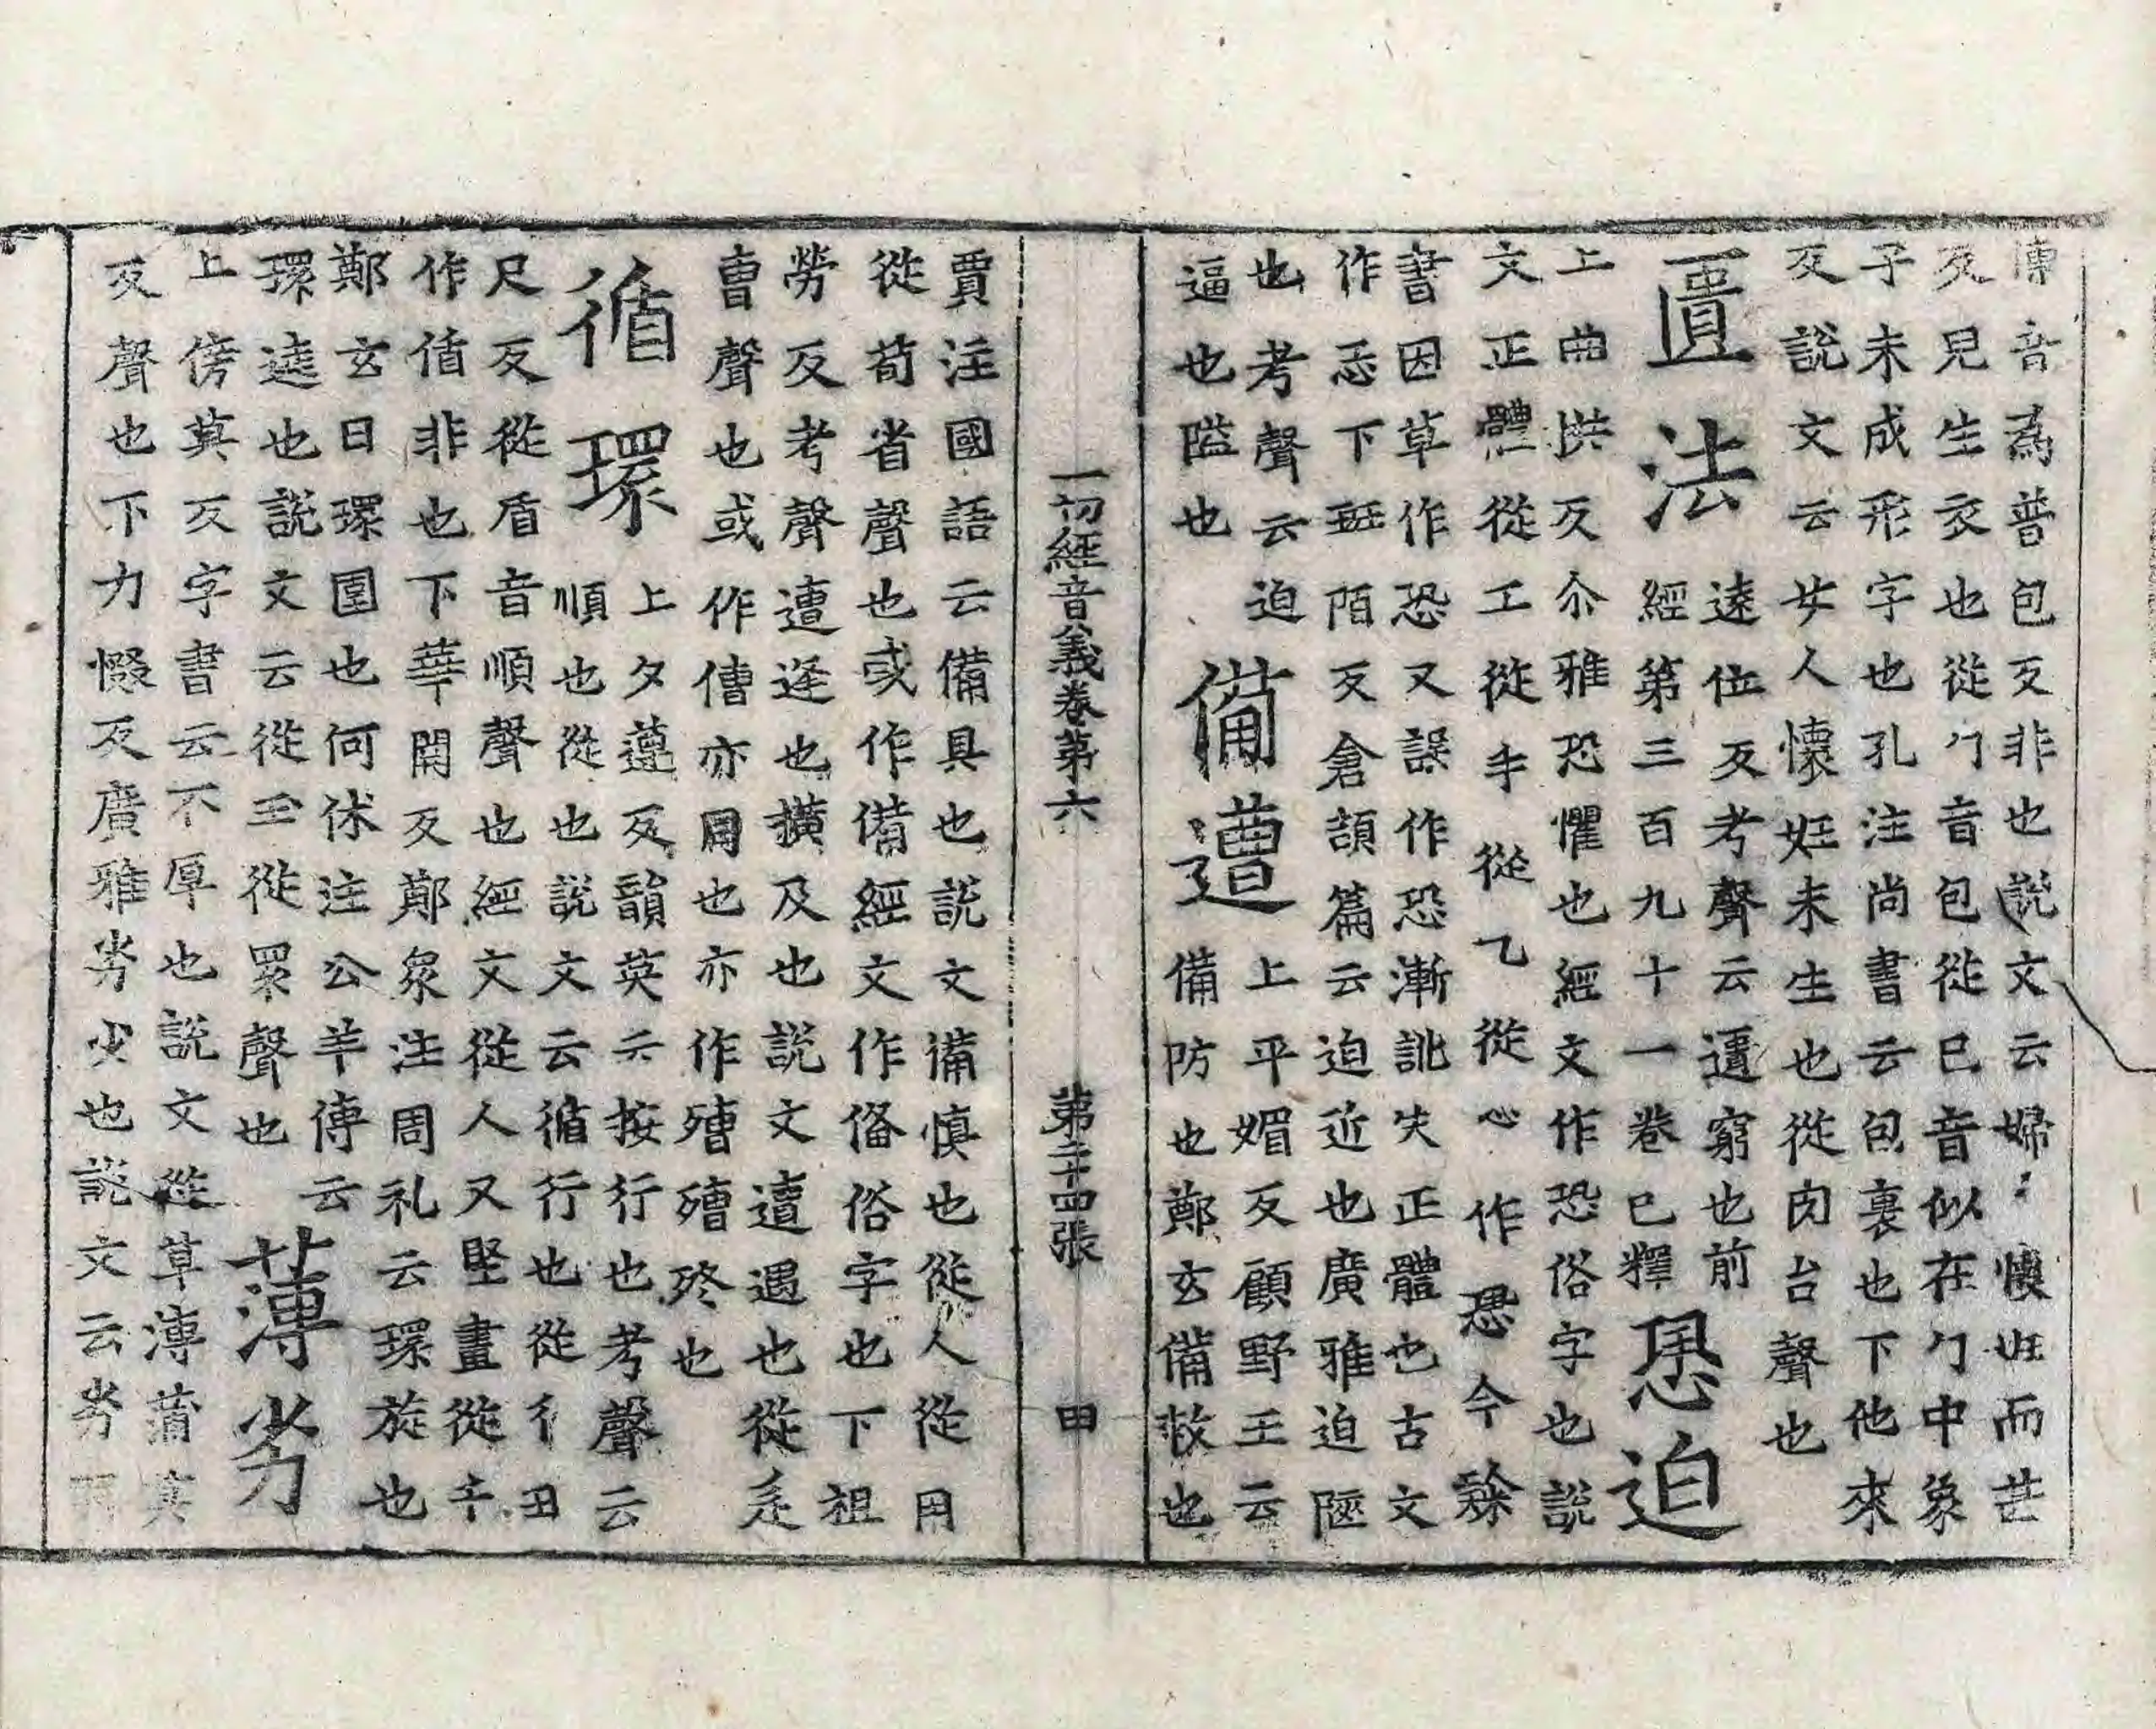 傳音為普包反非也說文云婦:懷妊而芒
反兒生衣也從勹音包從巳音似在勹中象
子未成形字也孔注尚書云包裹也下他來
反說文云女人懷妊未生也從肉台聲也
匱法
遠位反考聲云遺窮也前
經第三百九十一卷已釋
恐迫
上曲拱反尒雅恐懼也經文作恐俗字也說
文正體從工從丮從乙從心作恐今
書因草作恐又誤作恐漸訛失正體也古文
作忎下班陌反倉頡篇云迫近也廣雅迫陿
也考聲云迫
逼也隘也
備遭
上平媚反顧野王云
備防也鄭玄備救也
一切經音義卷第六 第二十四張 田
賈注國語云備具也說文備慎也從人從用
從茍省聲也或作僃經文作俻俗字也下祖
勞反考聲遭逢也撗及也說文遭遇也從辵
曺聲也或作傮亦用也亦作殰殰終也
循環
上夕遵反韻英云按行也考聲云
順也從也說文云循行也從彳丑
尺反從盾音順聲也經文從人又堅畫從千
作偱非也下華關反鄭眾注周礼云環旋也
鄭玄曰環圍也何休注公羊傳云
環遶也說文云從玉從睘聲也
薄劣
上傍莫反字書云不厚也說文從草溥蒲莫
反聲也下力惙反廣雅劣少也說文云劣